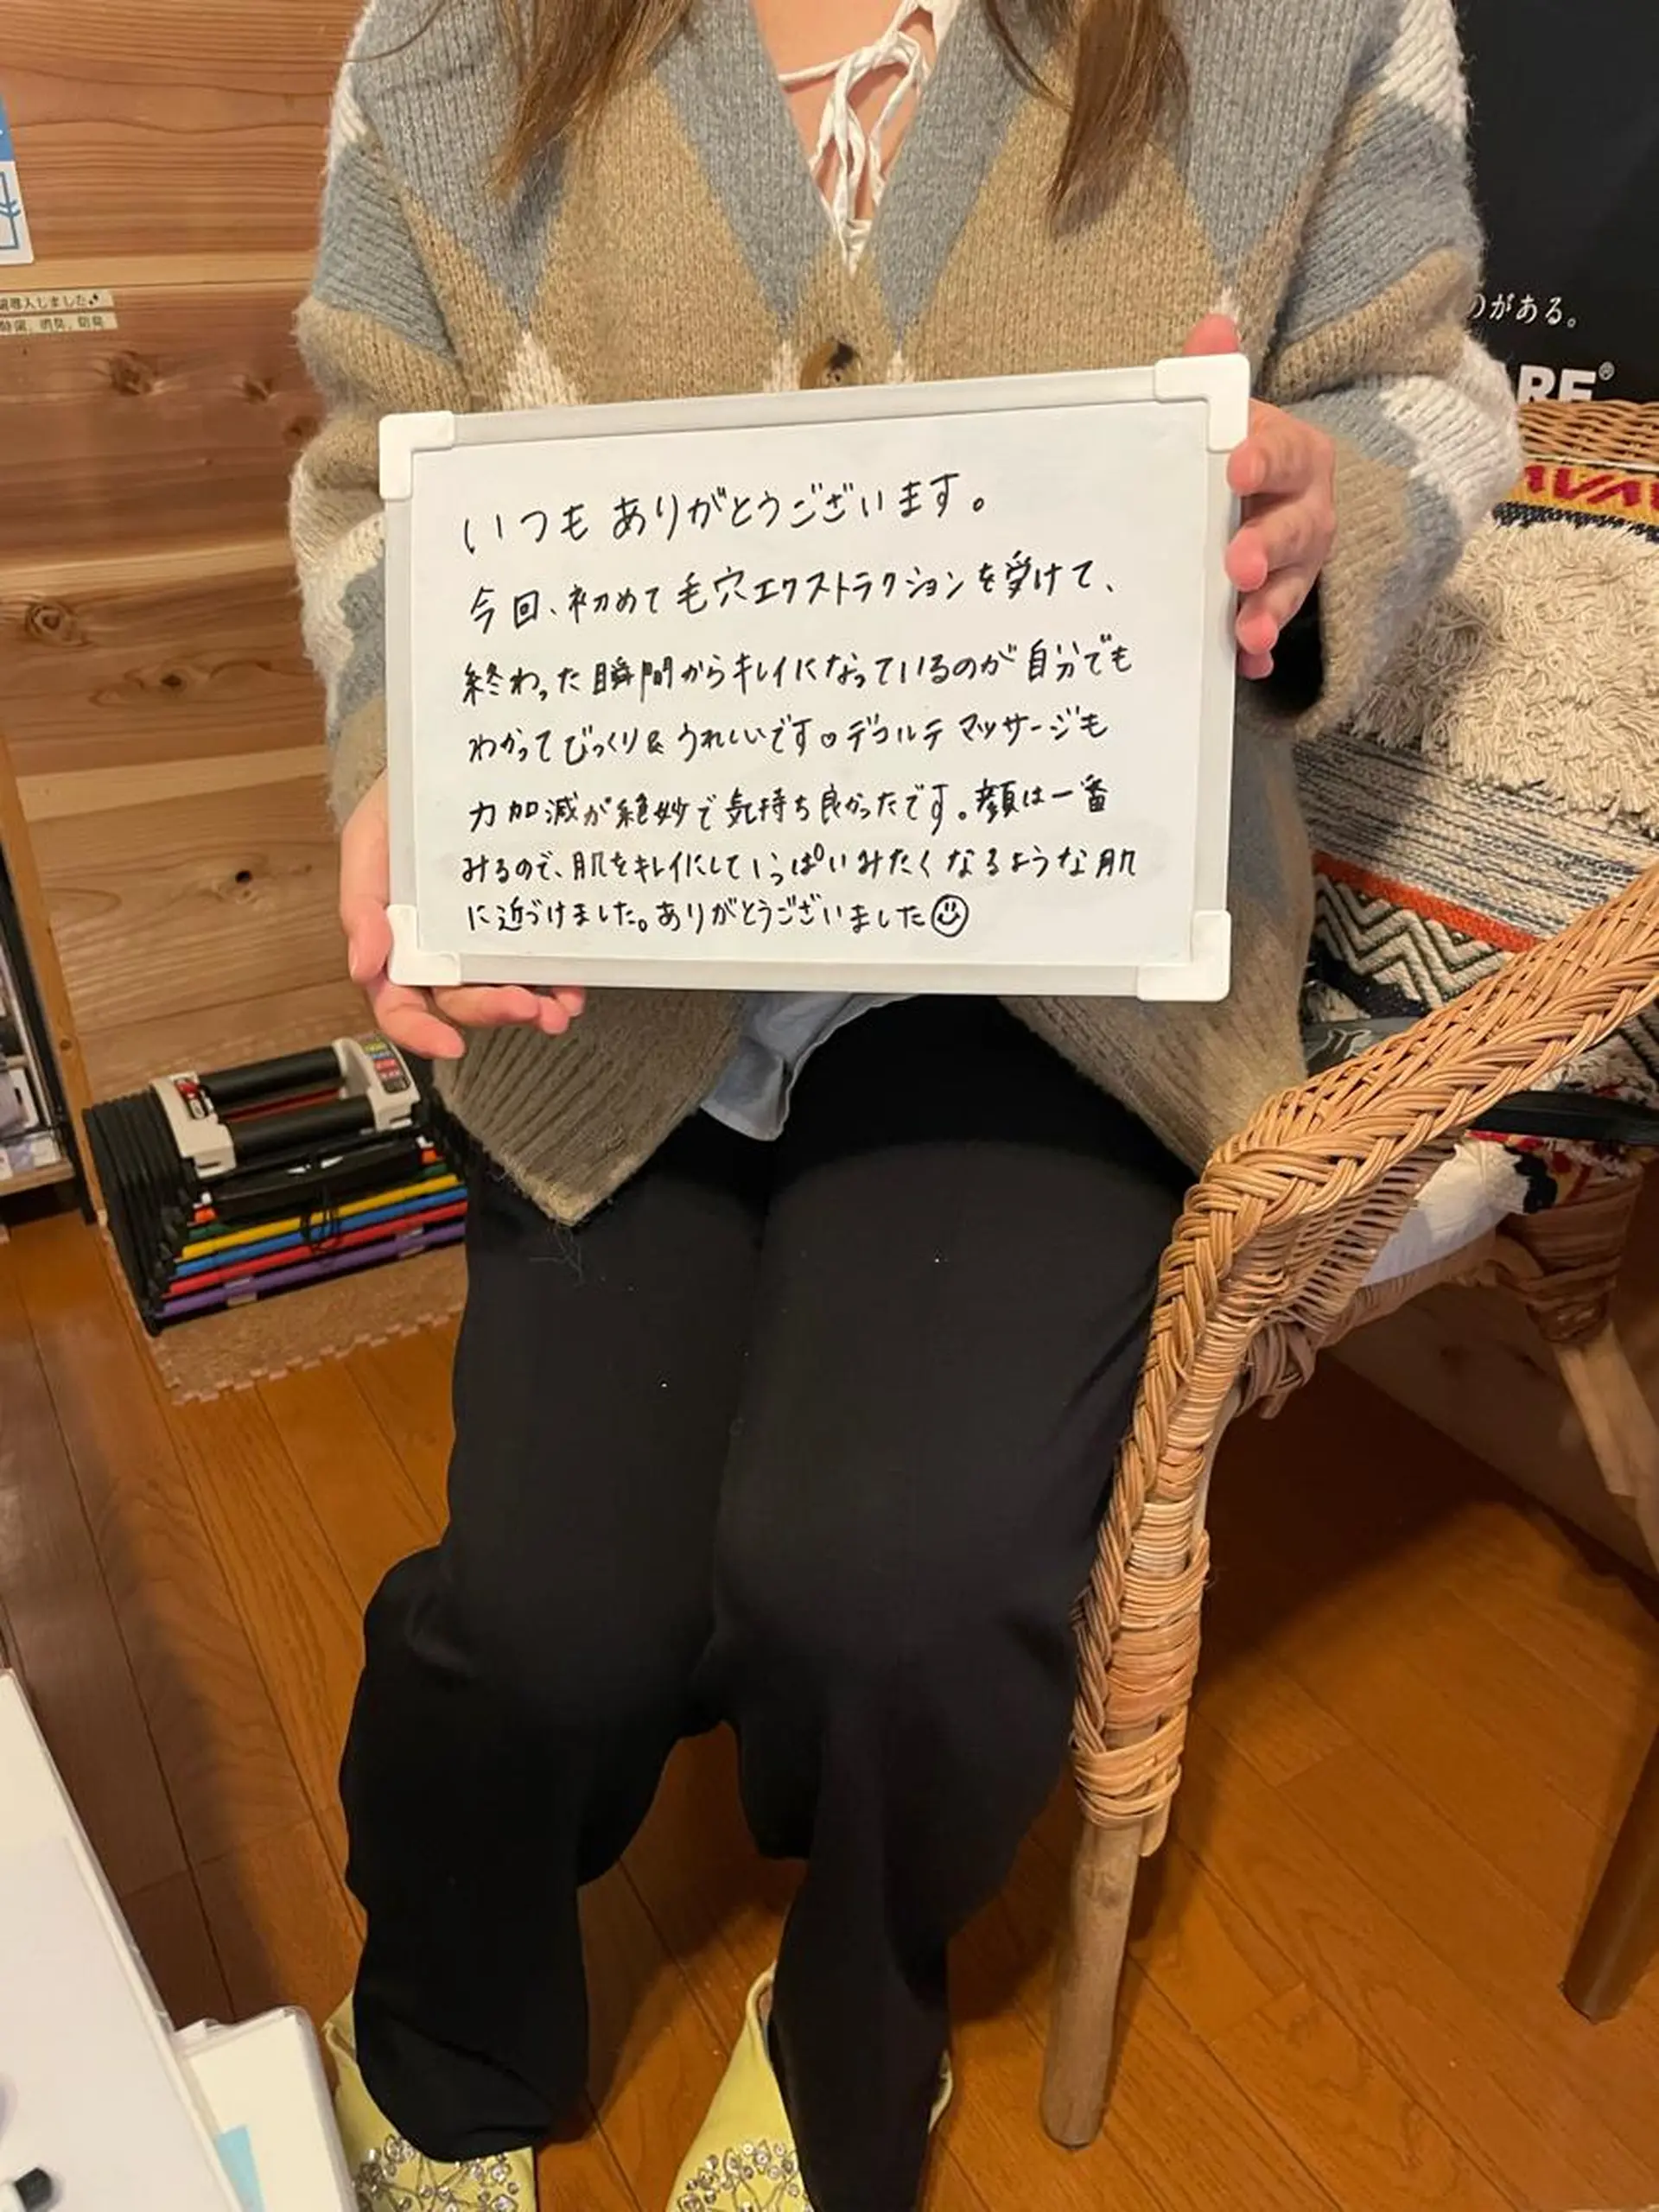 いつもありがとうございます。
今回、初めて毛穴エクストラクションを受けて、
終わった瞬間からキレイになっているのが自分でも
わかってびっくり&うれしいです。デコルテマッサージも
力加減が絶妙で気持ち良かったです。顔は一番
みるので、肌をキレイにしていっぱいみたくなるような肌
に近づけました。ありがとうございました☺
導入しました♪
除菌、消臭、防臭
のがある。
ARE®